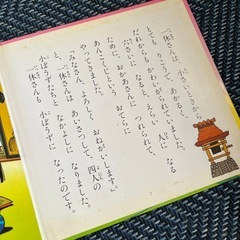 一休さんは、小さいときから
りこうで、あかるく、
だれからも かわいがられていました。
六さいに なると、えらい 人に なる
ために、おかあさんに つれられて、
あんこくじという おてらに
やってきました。
「みなさん、よろしく おねがいします。」
一休さんは あいさつして、四人の
小ぼうずたちと なかよしに なりました。
一休さんも 小ぼうずに なったのです。